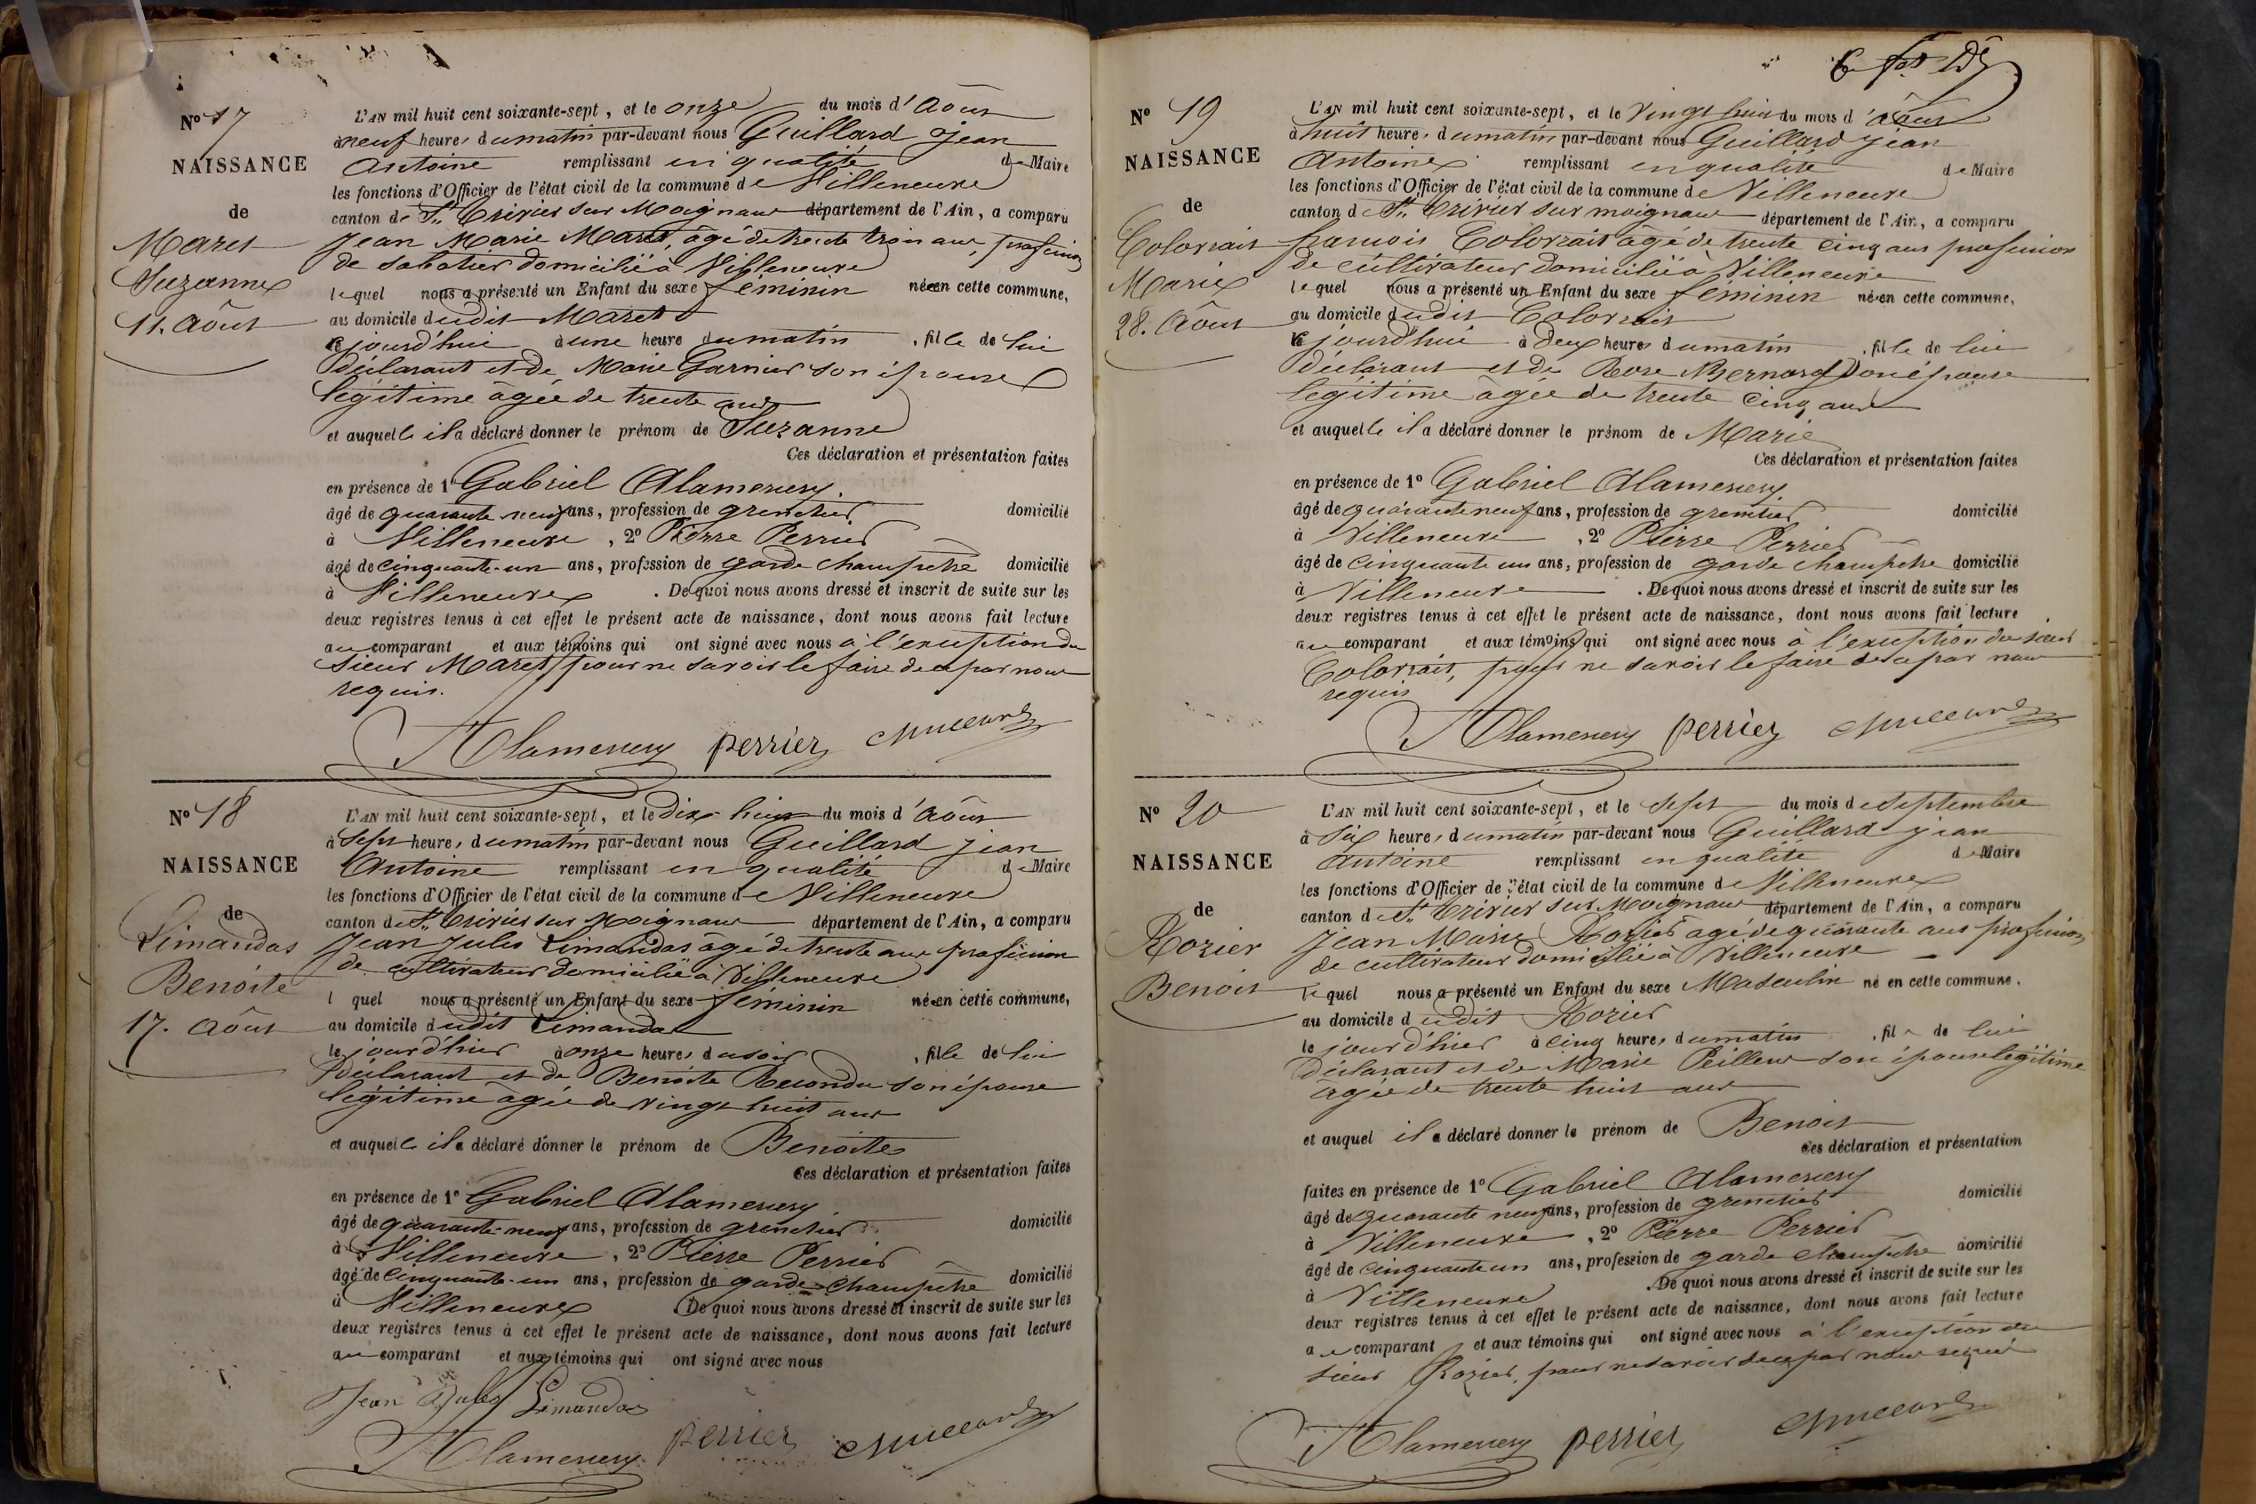 N° 17
NAISSANCE
de
Maret
Suzanne
11. Août
L'AN mil huit cent soixante-sept, et le onze du mois d'Août
à neuf heures du matin par-devant nous Guillard Jean
Antoine remplissant en qualité de Maire
les fonctions d'Officier de l'état civil de la commune de Villeneuve
canton de St. Trivier sur Moignans département de l'Ain, a comparu
Jean Marie Maret, âgé de trente trois ans, profession
de sabotier domicilié à Villeneuve
lequel nous a présenté un Enfant du sexe féminin né en cette commune,
au domicile dudit Maret
ce jourd'hui à une heure du matin, fille de lui
déclarant et de Marie Garnier son épouse
légitime âgée de trente ans
et auquelle il a déclaré donner le prénom de Suzanne
Ces déclaration et présentation faites
en présence de 1° Gabriel Alamercery.
âgé de quarante neuf ans, profession de grenetier domicilié
à Villeneuve, 2° Pierre Perrier
âgé de cinquante-un ans, profession de garde champêtre domicilié
à Villeneuve. De quoi nous avons dressé et inscrit de suite sur les
deux registres tenus à cet effet le présent acte de naissance, dont nous avons fait lecture
au comparant et aux témoins qui ont signé avec nous à l'exception du
sieur Maret, pour ne savoir le faire de ce par nous
requis.
Alamercery perrier
N° 18
NAISSANCE
de
Limandas
Benoite
17. Août
L'AN mil huit cent soixante-sept, et le Dix huit du mois d'Août
à Sept heures du matin par-devant nous Guillard Jean
Antoine remplissant en qualité de Maire
les fonctions d'Officier de l'état civil de la commune de Villeneuve
canton de St. Trivier sur Moignans département de l'Ain, a comparu
Jean Jules Limandas âgé de trente ans profession
de cultivateur domicilié à Villeneuve
l quel nous a présenté un Enfant du sexe féminin né en cette commune,
au domicile dudit Limandas
le jourd'hier à onze heures du soir, fille de lui
déclarant et de Benoite Recondu son épouse
légitime âgée de vingt huit ans
et auquelle il a déclaré donner le prénom de Benoite
Ces déclaration et présentation faites
en présence de 1° Gabriel Alamercery
âgé de quarante-neuf ans, profession de grenetier domicilié
à Villeneuve, 2° Pierre Perrier
âgé de cinquante-un ans, profession de garde-champêtre domicilié
à Villeneuve De quoi nous avons dressé et inscrit de suite sur les
deux registres tenus à cet effet le présent acte de naissance, dont nous avons fait lecture
au comparant et aux témoins qui ont signé avec nous
Jean Jules Limandas
Alamercery perrier
N° 19
NAISSANCE
de
Colovrait
Marie
28. Août
L'AN mil huit cent soixante-sept, et le Vingt huit du mois d'Août
à huit heures du matin par-devant nous Guillard Jean
Antoine remplissant en qualité de Maire
les fonctions d'Officier de l'état civil de la commune de Villeneuve
canton de St. Trivier sur moignans département de l'Ain, a comparu
francois Colovrait âgé de trente cinq ans profession
de cultivateur domicilié à Villeneuve
lequel nous a présenté un Enfant du sexe féminin né en cette commune,
au domicile dudit Colovrait
ce jourd'hui à deux heures du matin, fille de lui
déclarant et de Rose Bernard son épouse
légitime âgée de trente cinq ans
et auquelle il a déclaré donner le prénom de Marie
Ces déclaration et présentation faites
en présence de 1° Gabriel Alamercery
âgé de quarante neuf ans, profession de grenetier domicilié
à Villeneuve, 2° Pierre Perrier
âgé de cinquante un ans, profession de garde champêtre domicilié
à Villeneuve. De quoi nous avons dressé et inscrit de suite sur les
deux registres tenus à cet effet le présent acte de naissance, dont nous avons fait lecture
au comparant et aux témoins qui ont signé avec nous à l'exception du sieur
Colovrait, pour ne savoir le faire de ce par nous
requis
Alamercery perrier
N° 20
NAISSANCE
de
Rozier
Benoit
L'AN mil huit cent soixante-sept, et le Sept du mois de Septembre
à Six heures du matin par-devant nous Guillard Jean
Antoine remplissant en qualité de Maire
les fonctions d'Officier de l'état civil de la commune de Villeneuve
canton de St. Trivier sur Moignans département de l'Ain, a comparu
Jean Marie Rozier âgé de quarante ans profession
de cultivateur domicilié à Villeneuve
lequel nous a présenté un Enfant du sexe Masculin né en cette commune,
au domicile dudit Rozier
le jourd'hier à cinq heures du matin, fils de lui
déclarant et de Marie Peilleux son épouse légitime
âgée de trente huit ans
et auquel il a déclaré donner le prénom de Benoit
Ces déclaration et présentation
faites en présence de 1° Gabriel Alamercery
âgé de quarante neuf ans, profession de grenetier domicilié
à Villeneuve, 2° Pierre Perrier
âgé de cinquante un ans, profession de garde champêtre domicilié
à Villeneuve. De quoi nous avons dressé et inscrit de suite sur les
deux registres tenus à cet effet le présent acte de naissance, dont nous avons fait lecture
au comparant et aux témoins qui ont signé avec nous à l'exception du
sieur Rozier, pour ne savoir de ce par nous requis
Alamercery perrier